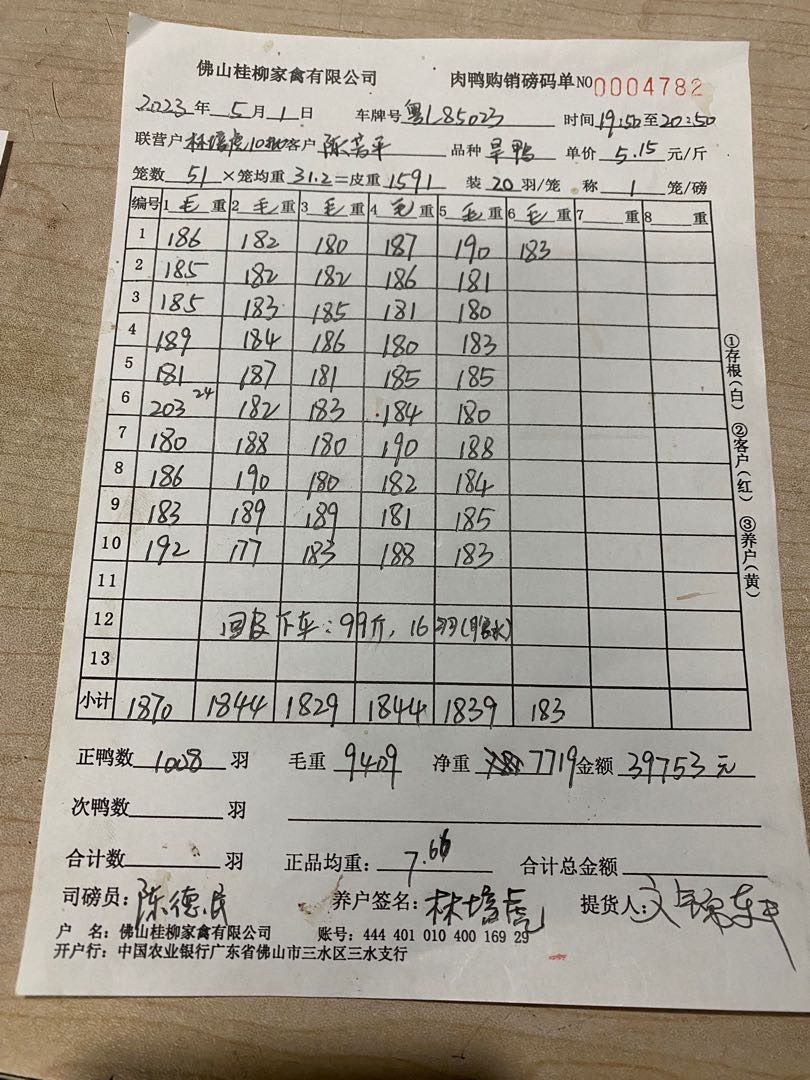 佛山桂柳家禽有限公司 肉鸭购销磅码单NO 0004782
2023年5月1日 车牌号粤L85023 时间19:50至20:50
联营户林培虎10批 客户 陈 平 品种 旱鸭 单价 5.15 元/斤
笼数 51 ×笼均重31.2=皮重1591 装20羽/笼 称 1 笼/磅
编号 1毛重 2毛重 3毛重 4毛重 5毛重 6毛重 7 重 8 重
1 186 182 180 187 190 183
2 185 182 182 186 181
3 185 183 185 181 180
4 189 184 186 180 183
5 181 187 181 185 185
6 203 24 182 183 184 180
7 180 188 180 190 188
8 186 190 180 182 184
9 183 189 189 181 185
10 192 177 183 188 183
11
12 回皮下车:99斤,16羽
13
小计 1870 1844 1829 1844 1839 183
正鸭数 1008 羽 毛重 9409 净重 7719 金额 39753元
次鸭数 羽
合计数 羽 正品均重: 7.66 合计总金额
司磅员:陈德民 养户签名:林培虎 提货人:
户 名:佛山桂柳家禽有限公司 账号:444 401 010 400 169 29
开户行:中国农业银行广东省佛山市三水区三水支行
①存根(白) ②客户(红) ③养户(黄)